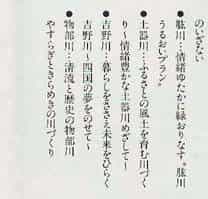 のいざない
●肱川…情緒ゆたかに緑おりなす。肱川
うるおいプラン〟
●土器川…ふるさとの風土を育む川づく
り〜情緒豊かな土器川めざして〜
●吉野川…暮らしをささえ未来をひらく
吉野川〜四国の夢をのせて〜
●物部川…清流と歴史の物部川
やすらぎときらめきの川づくり